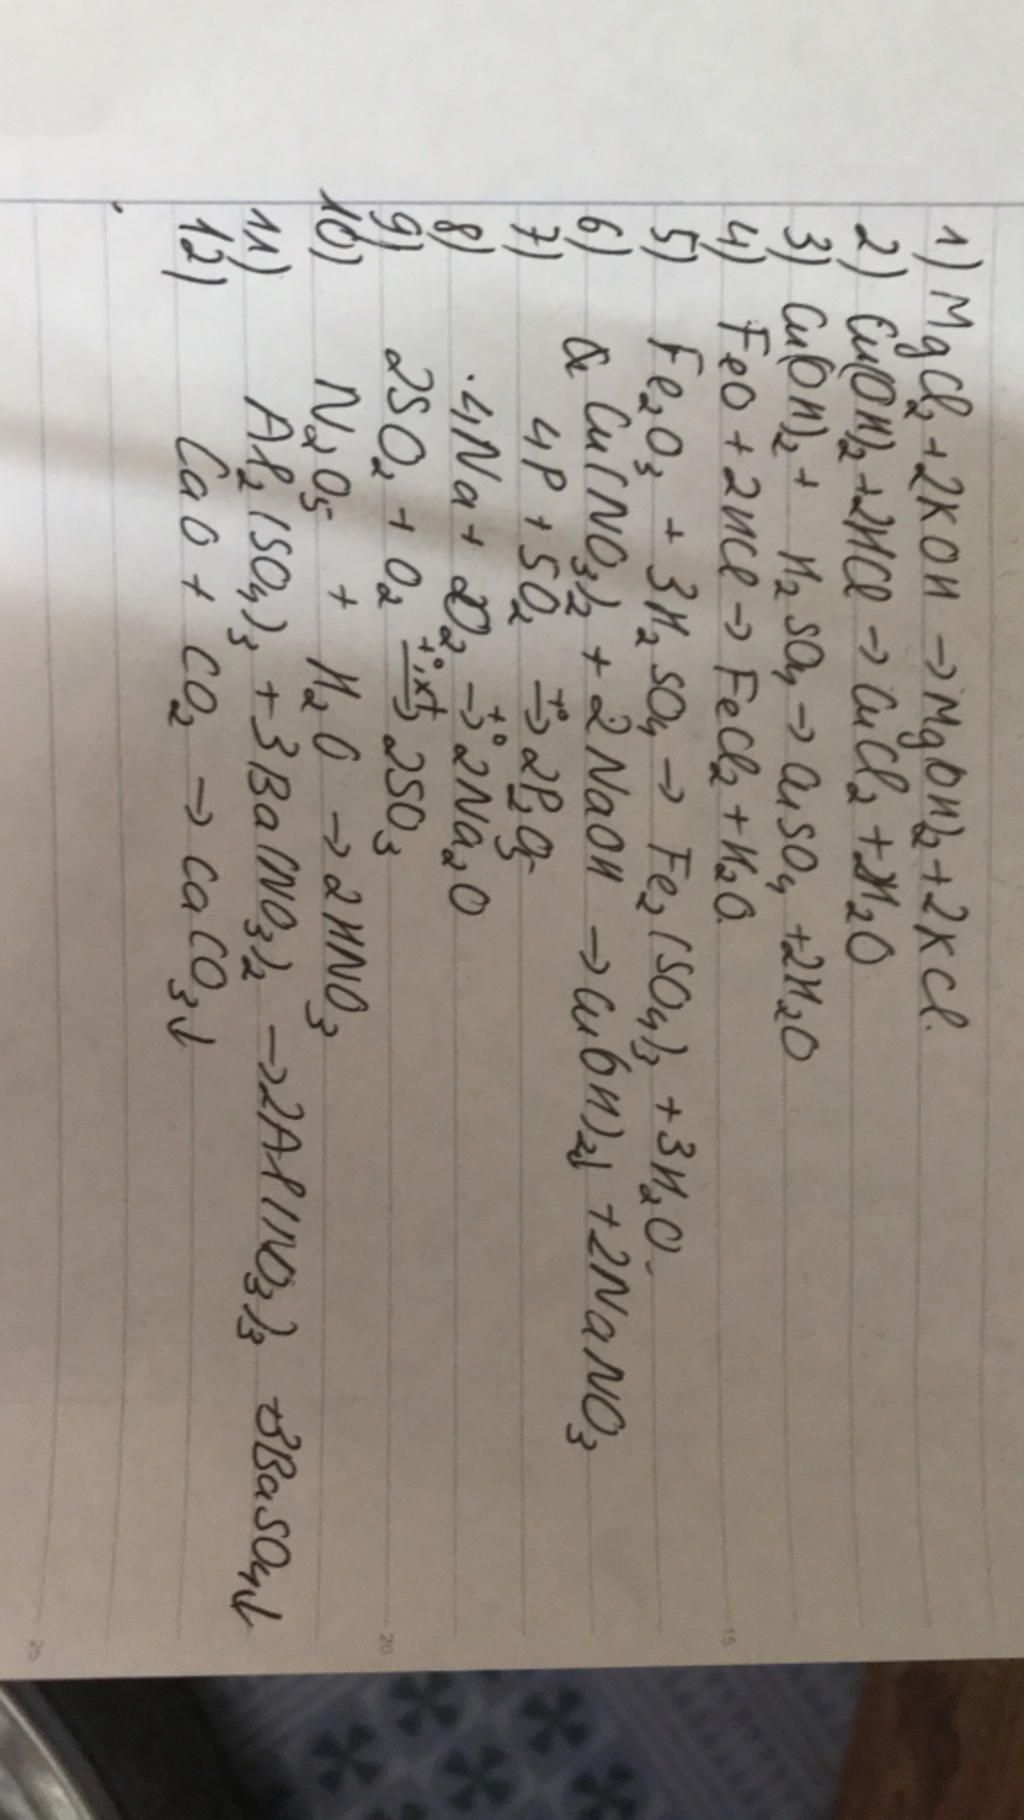 1) MgCl₂ + 2KOH → Mg(OH)₂ + 2KCl.
2) Cu(OH)₂ + 2HCl → CuCl₂ + 2H₂O
3) Cu(OH)₂ + H₂SO₄ → CuSO₄ + 2H₂O
4) FeO + 2HCl → FeCl₂ + H₂O
5) Fe₂O₃ + 3H₂SO₄ → Fe₂(SO₄)₃ + 3H₂O.
6) Cu(NO₃)₂ + 2NaOH → Cu(OH)₂↓ + 2NaNO₃
7) 4P + 5O₂ →t° 2P₂O₅
8) 4Na + O₂ →t° 2Na₂O
9) 2SO₂ + O₂ →t°,xt 2SO₃
10) N₂O₅ + H₂O → 2HNO₃
11) Al₂(SO₄)₃ + 3Ba(NO₃)₂ → 2Al(NO₃)₃ + 3BaSO₄↓
12) CaO + CO₂ → CaCO₃↓
15
20
25